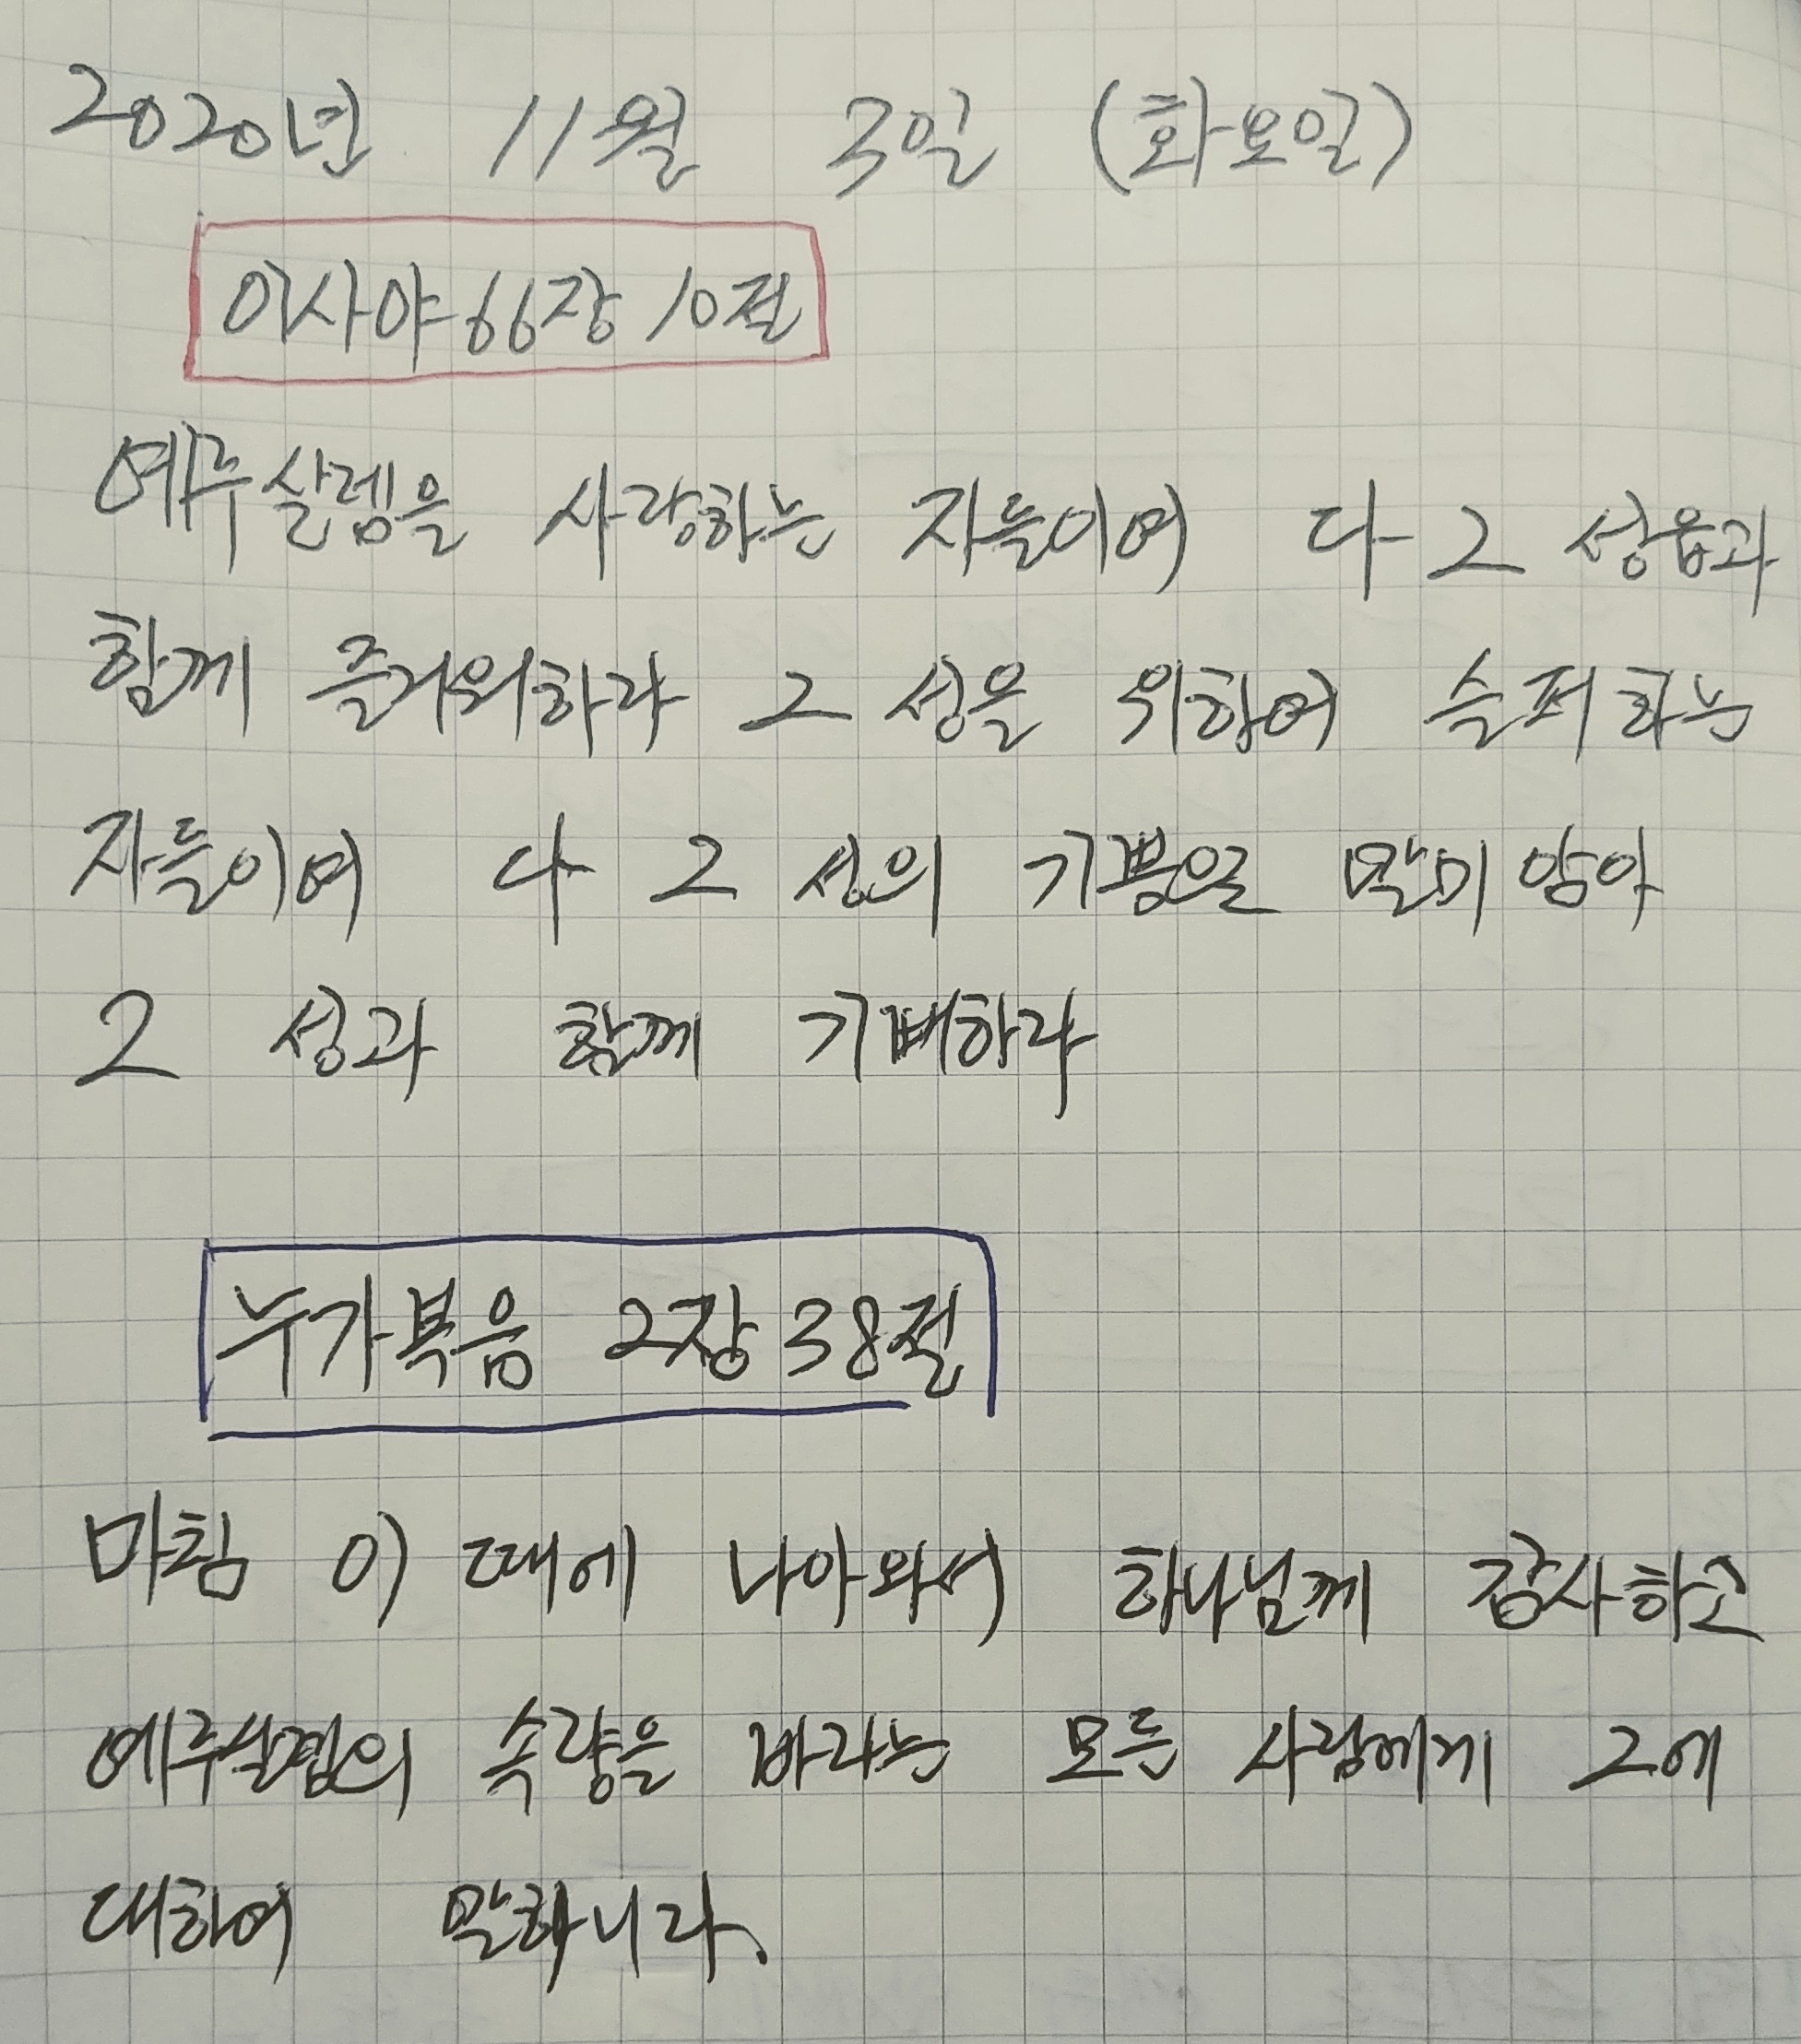 2020년 11월 3일 (화요일)
이사야 66장 10절
예루살렘을 사랑하는 자들이여 다 그 성읍과
함께 즐거워하라 그 성을 위하여 슬퍼하는
자들이여 다 그 성의 기쁨으로 말미암아
그 성과 함께 기뻐하라
누가복음 2장 38절
마침 이 때에 나아와서 하나님께 감사하고
예루살렘의 속량을 바라는 모든 사람에게 그에
대하여 말하니라.